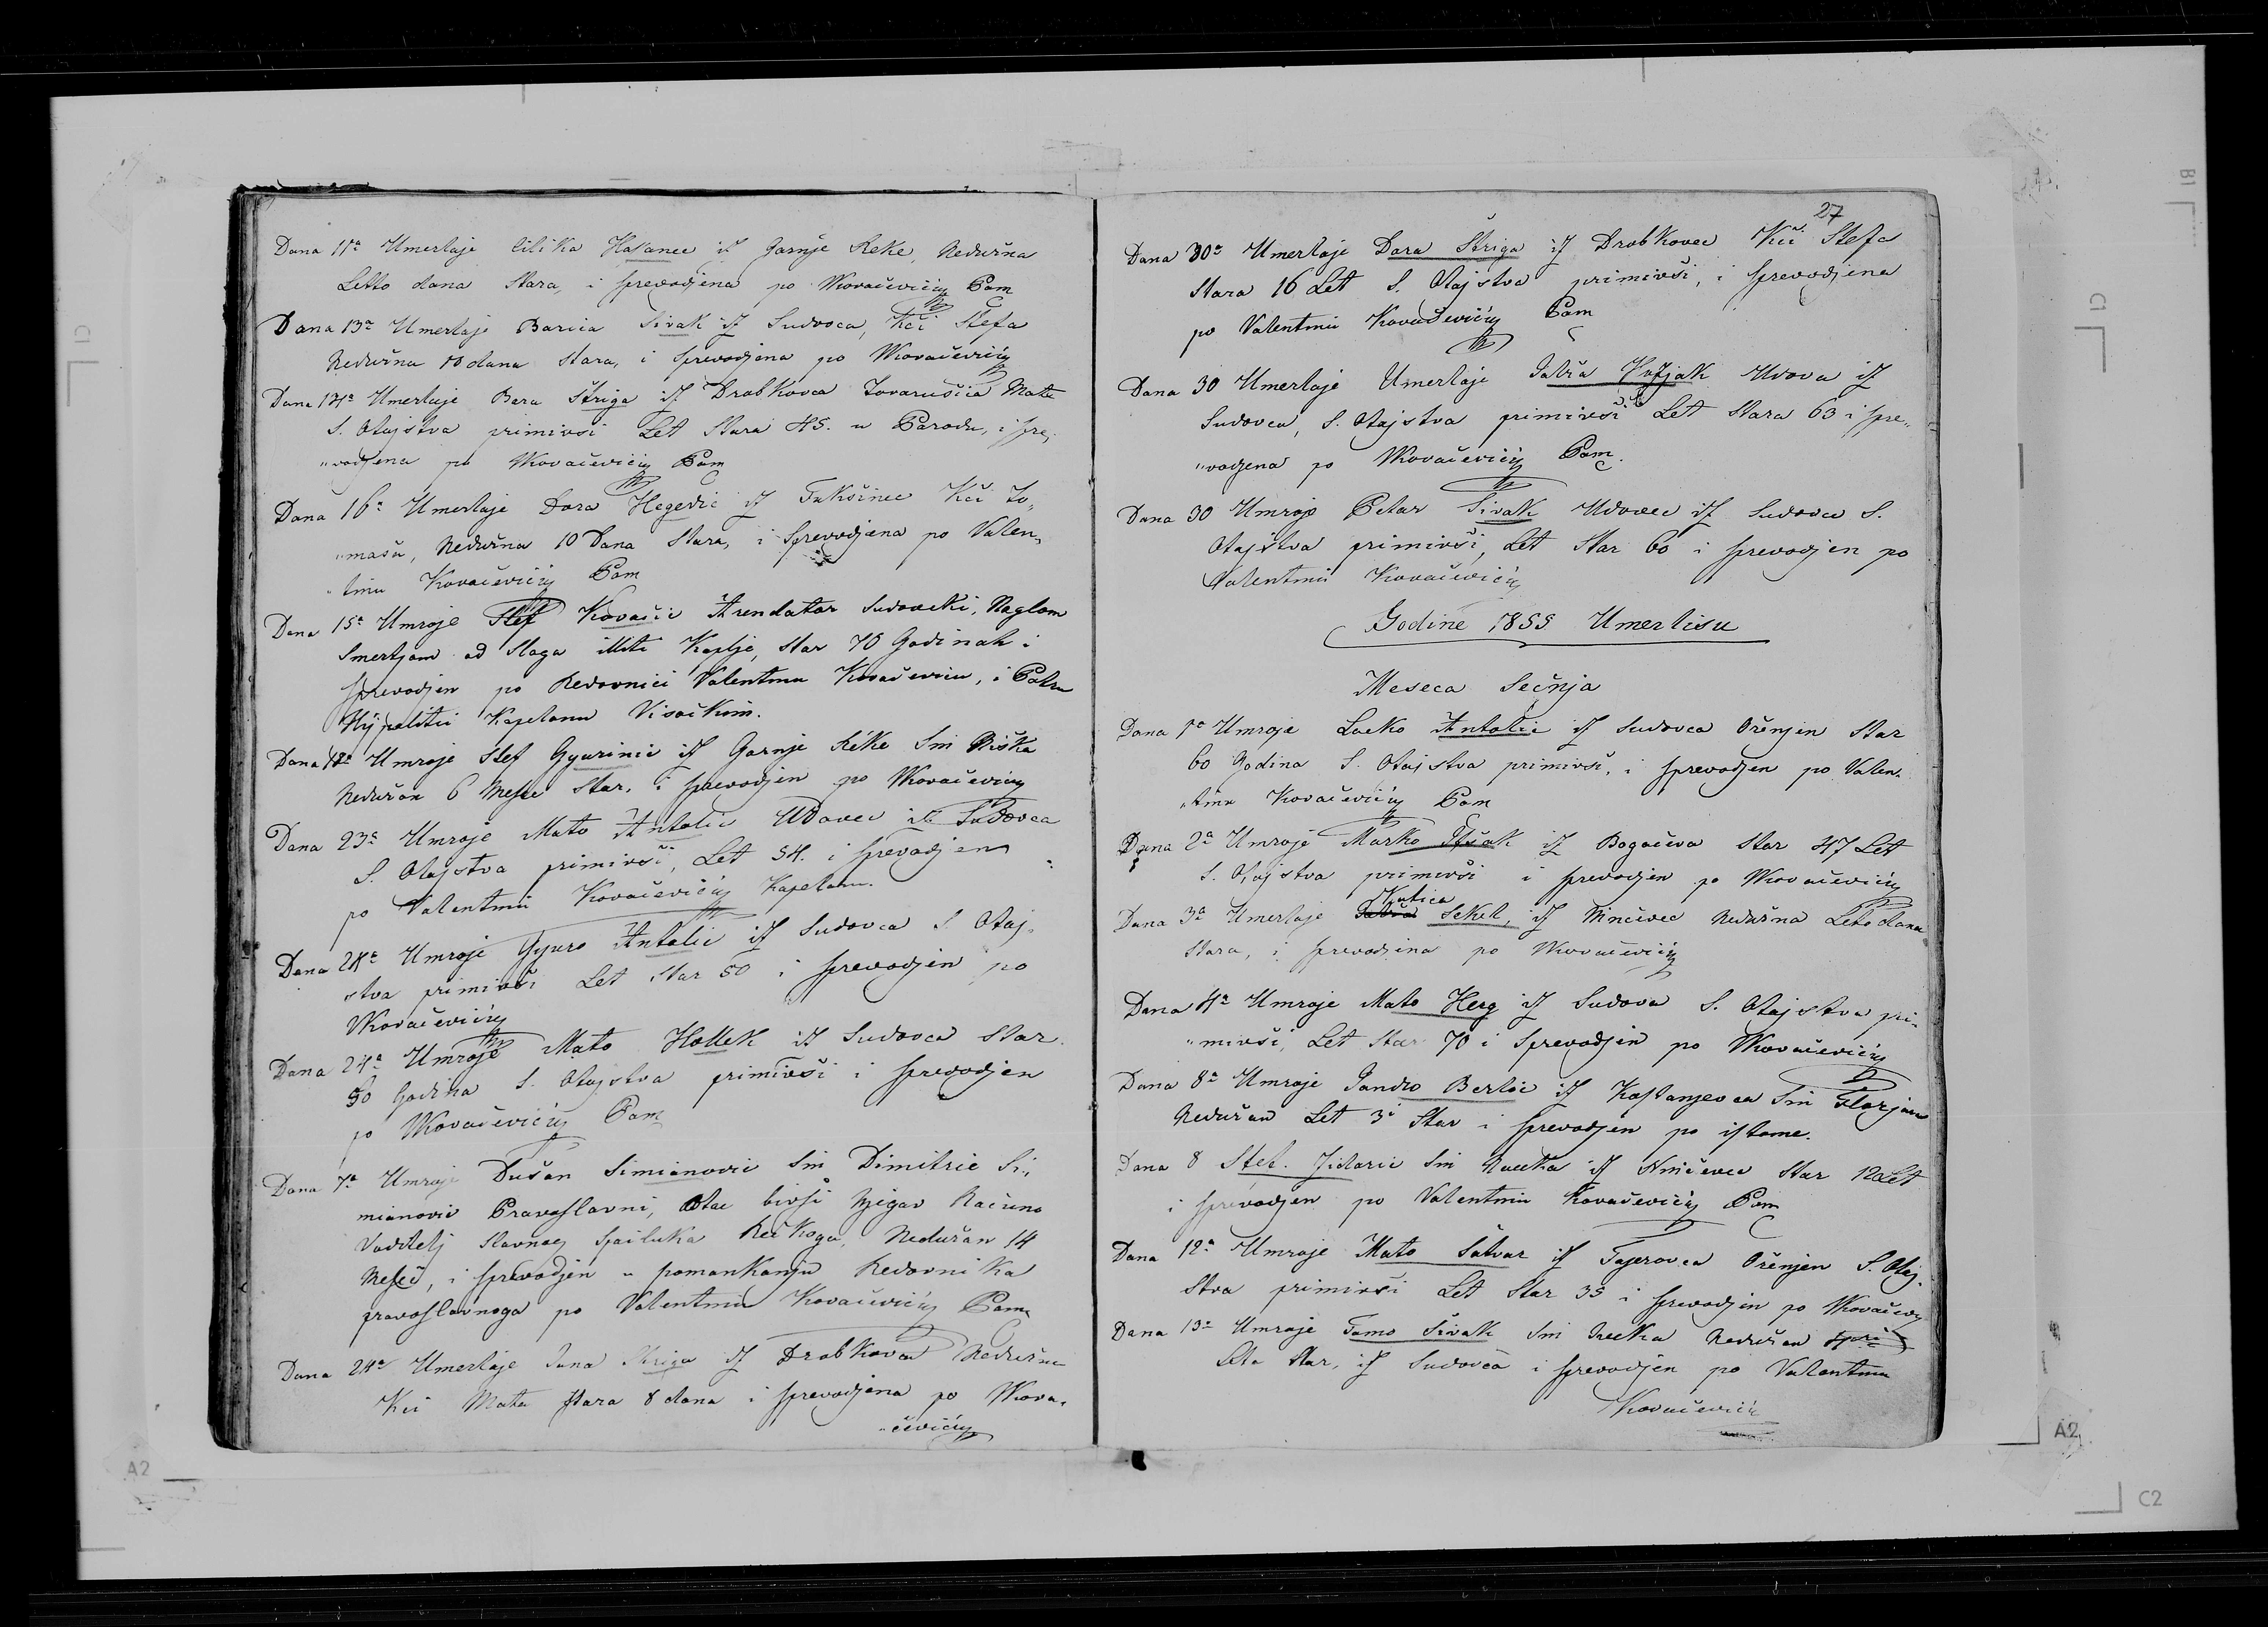 Dana 11a Umerlaje Cilika Hasanec iz Gornje Reke, Nedužna
Letto dana stara, i sprevodjena po VKovačeviću Pam
Dana 13a Umerlaje Barica Sivak iz Sudovca, Kći Stefa
Nedužna 10 dana stara, i sprevodjena po VKovačeviću
Dana 14a Umerlaje Bara Striga iz Drobkovca Tovarušica Mate
S. Otajstva primivši Let Stara 45. u Porodu, i spre„
„vodjena po VKovačeviću Pam
Dana 16a Umerlaje Dora Hegedić iz Fukšinec Kći To„
„maša, Nedužna 10 Dana Stara, i Sprevodjena po Valen„
„tinu Kovačeviću Pam
Dana 15a Umroje Stef Kovačić Arendator Sudovečki, Naglom
Smertjom od Sloga iliti Kaplje, star 70 Godinah i
Sprevodjen po Redovnici Valentinu Kovačeviću, i Patru
Hÿpolitu Kapelanu Visočkom.
Dana 18a Umroje Stef Gyurinić iz Gornje Rike Sin Biška
Nedužan 6 Mesec Star, i sprevodjen po VKovačeviću
Dana 23a Umroje Mato Antolić Udovec iz Sudovca
S. Otajstva primivši, Let 54. i Sprevodjen
po Valentinu Kovačeviću Kapelanu.
Dana 24a Umroje Gyuro Antolić iz Sudovca S. Otaj„
stva primivši Let Star 50 i sprevodjen po
VKovačeviću
Dana 24a Umroje Mato Hollek iz Sudovca Star
50 Godina S. Otajstva primivši i sprevodjen
po VKovačeviću Pam
Dana 7a Umroje Dušan Simianović Sin Dimitrie Si„
mianović Pravoslavni, Otac bivši Njigov Računo
Voditelj Slavnog Spailuka Rečkoga, Nedužan 14
Meseč, i sprevodjen u pomankanju Redovnika
pravoslavnoga po Valentinu Kovačeviću Pam
Dana 24a Umerlaje Jana Striga iz Drobkovca Nedužna
Kći Mate stara 8 dana i sprevodjena po VKova„
„čeviću
27
Dana 30a Umerlaje Dora Striga iz Drobkovec Kći Stefa
Stara 16 Let S. Otajstva primivši, i sprevodjena
po Valentinu Kovačeviću Pam
Dana 30 Umerlaje Umerlaje Udova iz
Sudovca, S. Otajstva primivši Let Stara 63 i spre„
„vodjena po VKovačeviću Pam.
Dana 30 Umroje Petar Sivak Udovec iz Sudovca S.
Otajstva primivši, Let Star 60 i sprevodjen po
Valentinu Kovačeviću
Godine 1855 Umerlisu
Meseca Sečnja
Dana 1a Umroje Lacko Antolić iz Sudovca Oženjen Star
60 Godina S. Otajstva primivši, i sprevodjen po Valen„
„tinu Kovačeviću Pam
Dana 2a Umroje Marko iz Bogačeva Star 47 Let
S. Otajstva primivši i sprevodjen po VKovačeviću
Katica
Dana 3a Umerlaje Sekel, iz Ninčevec Nedužna Leto dana
stara, i sprevodjena po VKovačeviću
Dana 4a Umroje Mato Herg iz Sudova S. Otajstva pri„
„mivši, Let Star 70 i Sprevodjen po VKovačeviću
Dana 8a Umroje Jandro Berlić iz Kostanjevca Sin Florjana
Nedužan Let 3i Star i sprevodjen po istome.
Dana 8 Stef. Jidarić Sin iz Ninčevec Star 12 Let
i sprevodjen po Valentinu Kovačeviću Pam
Dana 12a Umroje Mato Satvar iz Fajerovca Oženjen S. Otaj„
stva primivši Let Star 35 i sprevodjen po VKovačeviću
Dana 13a Umroje Tomo Sivak Sin Nedužan
Leta Star, iz Sudovca i sprevodjen po Valentinu
Kovačeviću
A2
C1
B1
C1
A2
C2